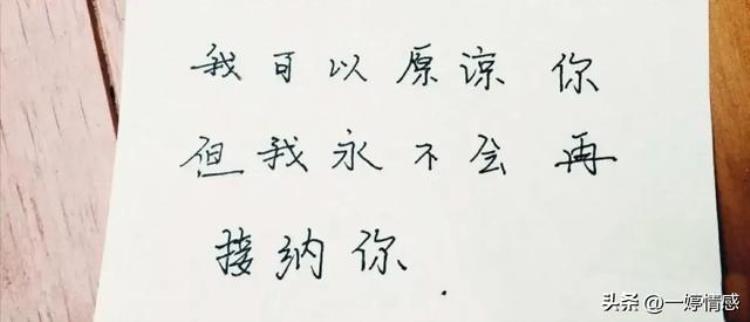 我可以原谅你
但我永不会再
接纳你.
头条 @一婷情感